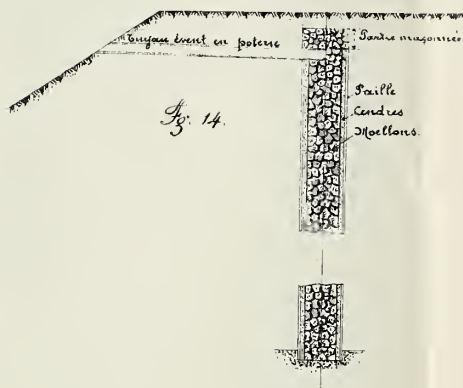 Tuyau évent en poterie
Partie maçonnée
Fig. 14.
Paille
Cendres
Moellons.